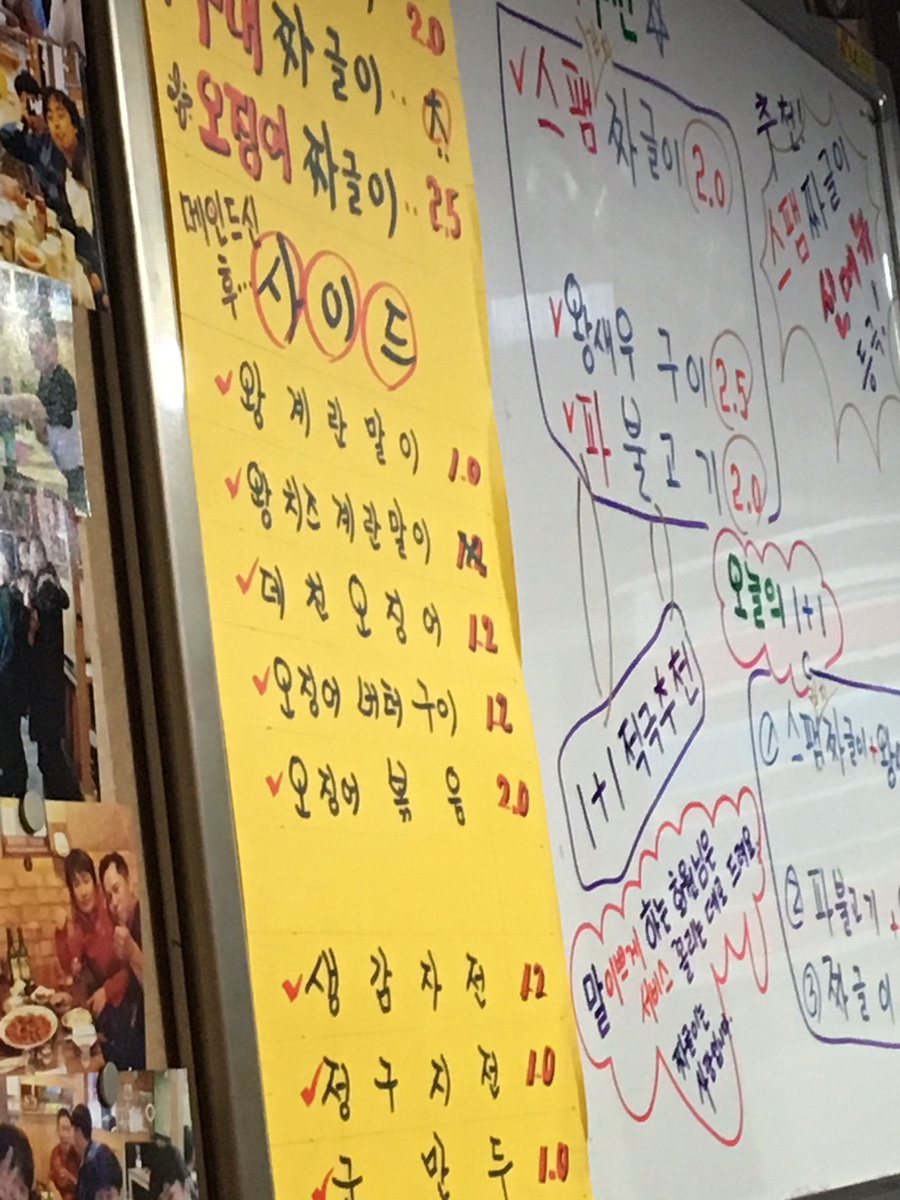 2.0
짜글이..
大
오징어 짜글이.. 2.5
메인드신
후... 사이드
✓왕계란말이 1.0
✓왕치즈계란말이 1.2
✓데친오징어 1.2
✓오징어버터구이 1.2
✓오징어볶음 2.0
✓생감자전 1.2
✓정구지전 1.0
✓군만두 1.0
✓스팸 짜글이 2.0
✓왕새우 구이 2.5
✓파불고기 2.0
추천!
스팸 짜글이
오늘의 1+1
1+1 적극추천
① 스팸짜글이+왕
② 파불고기 +
③ 짜글이
말 이쁘게 하는 손님은
서비스 꼴리는 데로 드려요
짜글이는
사랑입니다.